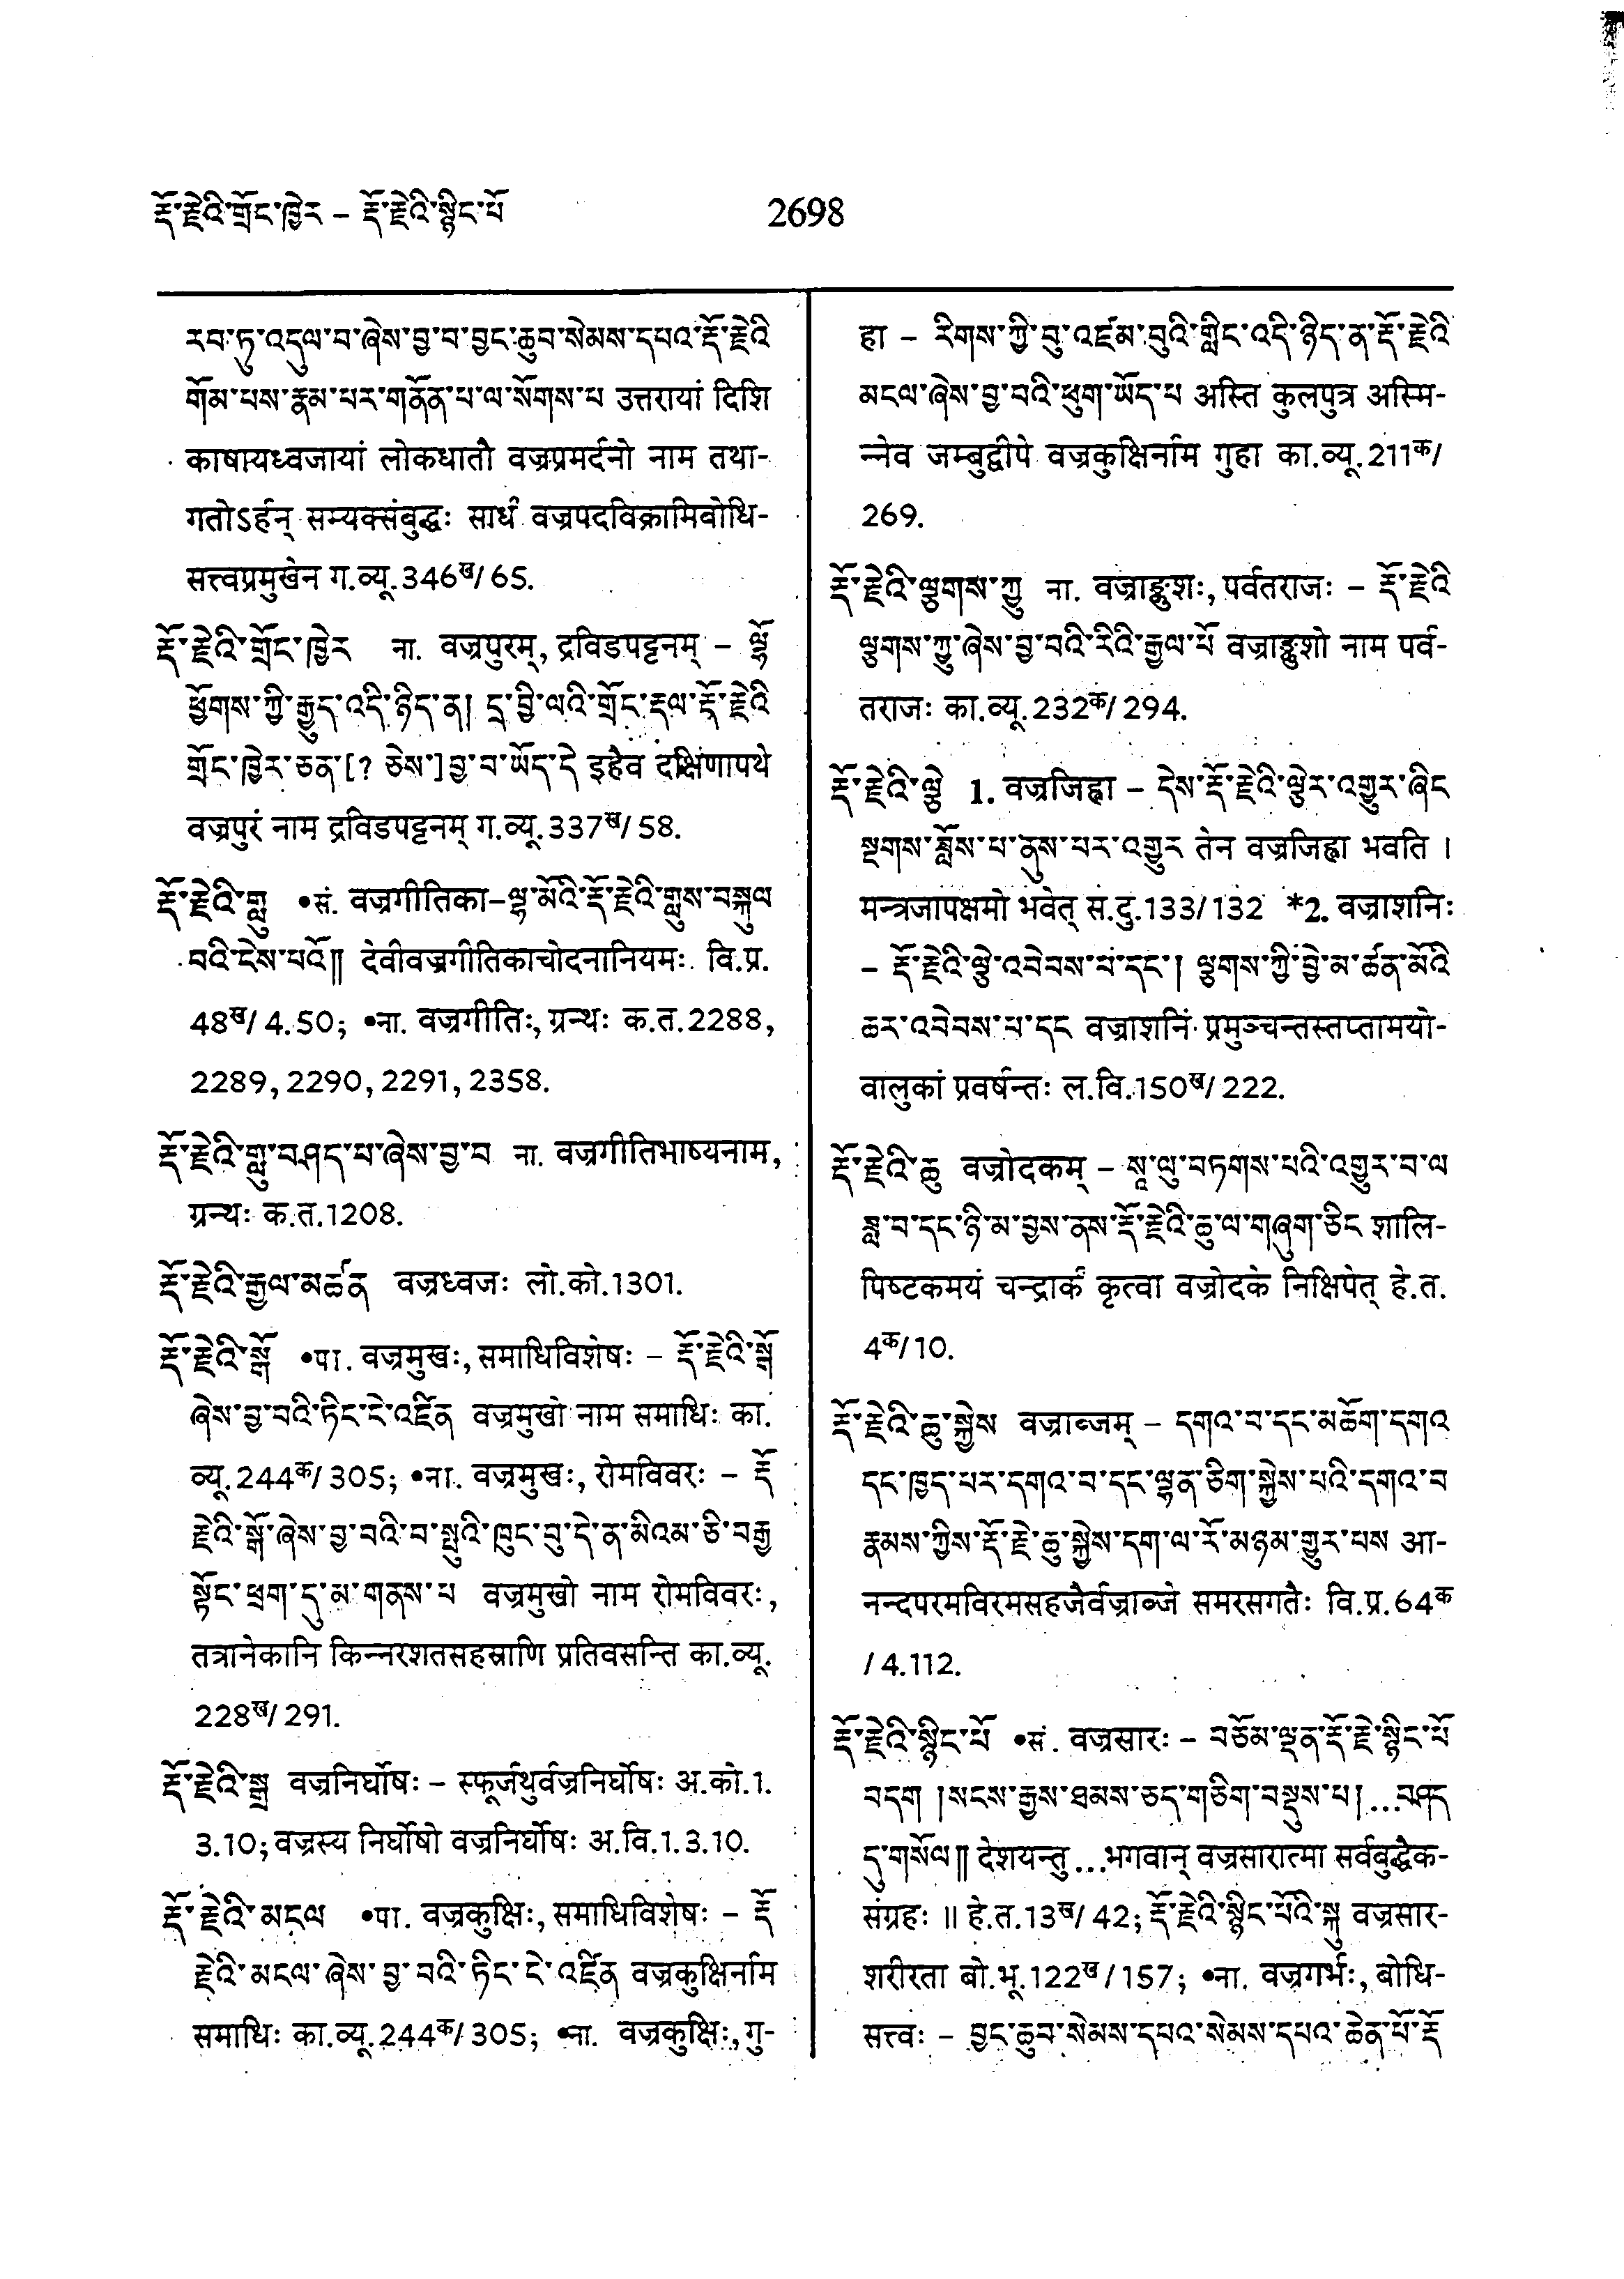 རྡོ་རྗེའི་གྲོང་ཁྱེར – རྡོ་རྗེའི་སྙིང་པོ
2698
རབ་ཏུ་འདུལ་བ་ཞེས་བྱ་བ་བྱང་ཆུབ་སེམས་དཔའ་རྡོ་རྗེའི
གོམ་པས་རྣམ་པར་གནོན་པ་ལ་སོགས་པ उत्तरायां दिशि
काषायध्वजायां लोकधातौ वज्रप्रमर्दनो नाम तथा-
गतोऽर्हन् सम्यक्संबुद्धः सार्धं वज्रपदविक्रामिबोधि-
सत्त्वप्रमुखेन ग.व्यू.346ख/65.
རྡོ་རྗེའི་གྲོང་ཁྱེར ना. वज्रपुरम्, द्रविडपट्टनम् – ལྷོ
ཕྱོགས་ཀྱི་རྒྱུད་འདི་ཉིད་ན། དྲ་བྱི་ལའི་གྲོང་རྡལ་རྡོ་རྗེའི
གྲོང་ཁྱེར་ཅན་[? ཅེས་]བྱ་བ་ཡོད་དེ इहैव दक्षिणापथे
वज्रपुरं नाम द्रविडपट्टनम् ग.व्यू.337ख/58.
རྡོ་རྗེའི་གླུ •सं. वज्रगीतिका–ལྷ་མོའི་རྡོ་རྗེའི་གླུས་བསྐུལ
བའི་ངེས་པའོ༎ देवीवज्रगीतिकाचोदनानियमः वि.प्र.
48ख/4.50; •ना. वज्रगीतिः, ग्रन्थः क.त.2288,
2289, 2290, 2291, 2358.
རྡོ་རྗེའི་གླུ་བཤད་པ་ཞེས་བྱ་བ ना. वज्रगीतिभाष्यनाम,
ग्रन्थः क.त.1208.
རྡོ་རྗེའི་རྒྱལ་མཚན वज्रध्वजः लो.को.1301.
རྡོ་རྗེའི་སྒོ •पा. वज्रमुखः, समाधिविशेषः – རྡོ་རྗེའི་སྒོ
ཞེས་བྱ་བའི་ཏིང་ངེ་འཛིན वज्रमुखो नाम समाधिः का.
व्यू.244क/305; •ना. वज्रमुखः, रोमविवरः – རྡོ
རྗེའི་སྒོ་ཞེས་བྱ་བའི་བ་སྤུའི་ཁུང་བུ་དེ་ན་མིའམ་ཅི་བརྒྱ
སྟོང་ཕྲག་དུ་མ་གནས་པ वज्रमुखो नाम रोमविवरः,
तत्रानेकानि किन्नरशतसहस्राणि प्रतिवसन्ति का.व्यू.
228ख/291.
རྡོ་རྗེའི་སྒྲ वज्रनिर्घोषः – स्फूर्जथुर्वज्रनिर्घोषः अ.को.1.
3.10; वज्रस्य निर्घोषो वज्रनिर्घोषः अ.वि.1.3.10.
རྡོ་རྗེའི་མངལ •पा. वज्रकुक्षिः, समाधिविशेषः – རྡོ
རྗེའི་མངལ་ཞེས་བྱ་བའི་ཏིང་ངེ་འཛིན वज्रकुक्षिर्नाम
समाधिः का.व्यू.244क/305; •ना. वज्रकुक्षिः, गु-
हा – རིགས་ཀྱི་བུ་འཛམ་བུའི་གླིང་འདི་ཉིད་ན་རྡོ་རྗེའི
མངལ་ཞེས་བྱ་བའི་ཕུག་ཡོད་པ अस्ति कुलपुत्र अस्मि-
न्नेव जम्बुद्वीपे वज्रकुक्षिर्नाम गुहा का.व्यू.211क/
269.
རྡོ་རྗེའི་ལྕགས་ཀྱུ ना. वज्राङ्कुशः, पर्वतराजः – རྡོ་རྗེའི
ལྕགས་ཀྱུ་ཞེས་བྱ་བའི་རིའི་རྒྱལ་པོ वज्राङ्कुशो नाम पर्व-
तराजः का.व्यू.232क/294.
རྡོ་རྗེའི་ལྕེ 1. वज्रजिह्वा – དེས་རྡོ་རྗེའི་ལྕེར་འགྱུར་ཞིང
སྔགས་བློས་པ་ནུས་པར་འགྱུར तेन वज्रजिह्वा भवति ।
मन्त्रजापक्षमो भवेत् स.दु.133/132 *2. वज्राशनिः
– རྡོ་རྗེའི་ལྕེ་འབེབས་པ་དང་། ལྕགས་ཀྱི་བྱེ་མ་ཚན་མོའི
ཆར་འབེབས་པ་དང वज्राशनिं प्रमुञ्चन्तस्तप्तामयो-
वालुकां प्रवर्षन्तः ल.वि.150ख/222.
རྡོ་རྗེའི་ཆུ वज्रोदकम् – སཱ་ལུ་བཏགས་པའི་འགྱུར་བ་ལ
ཟླ་བ་དང་ཉི་མ་བྱས་ནས་རྡོ་རྗེའི་ཆུ་ལ་གཞུག་ཅིང शालि-
पिष्टकमयं चन्द्रार्कं कृत्वा वज्रोदके निक्षिपेत् हे.त.
4क/10.
རྡོ་རྗེའི་ཆུ་སྐྱེས वज्राब्जम् – དགའ་བ་དང་མཆོག་དགའ
དང་ཁྱད་པར་དགའ་བ་དང་ལྷན་ཅིག་སྐྱེས་པའི་དགའ་བ
རྣམས་ཀྱིས་རྡོ་རྗེ་ཆུ་སྐྱེས་དག་ལ་རོ་མཉམ་གྱུར་པས आ-
नन्दपरमविरमसहजैर्वज्राब्जे समरसगतैः वि.प्र.64क
/4.112.
རྡོ་རྗེའི་སྙིང་པོ •सं. वज्रसारः – བཅོམ་ལྡན་རྡོ་རྗེ་སྙིང་པོ
བདག །སངས་རྒྱས་ཐམས་ཅད་གཅིག་བསྡུས་པ།...བཤད
དུ་གསོལ༎ देशयन्तु ...भगवान् वज्रसारात्मा सर्वबुद्धैक-
संग्रहः ॥ हे.त.13ख/42; རྡོ་རྗེའི་སྙིང་པོའི་སྐུ वज्रसार-
शरीरता बो.भू.122ख/157; •ना. वज्रगर्भः, बोधि-
सत्त्वः – བྱང་ཆུབ་སེམས་དཔའ་སེམས་དཔའ་ཆེན་པོ་རྡོ